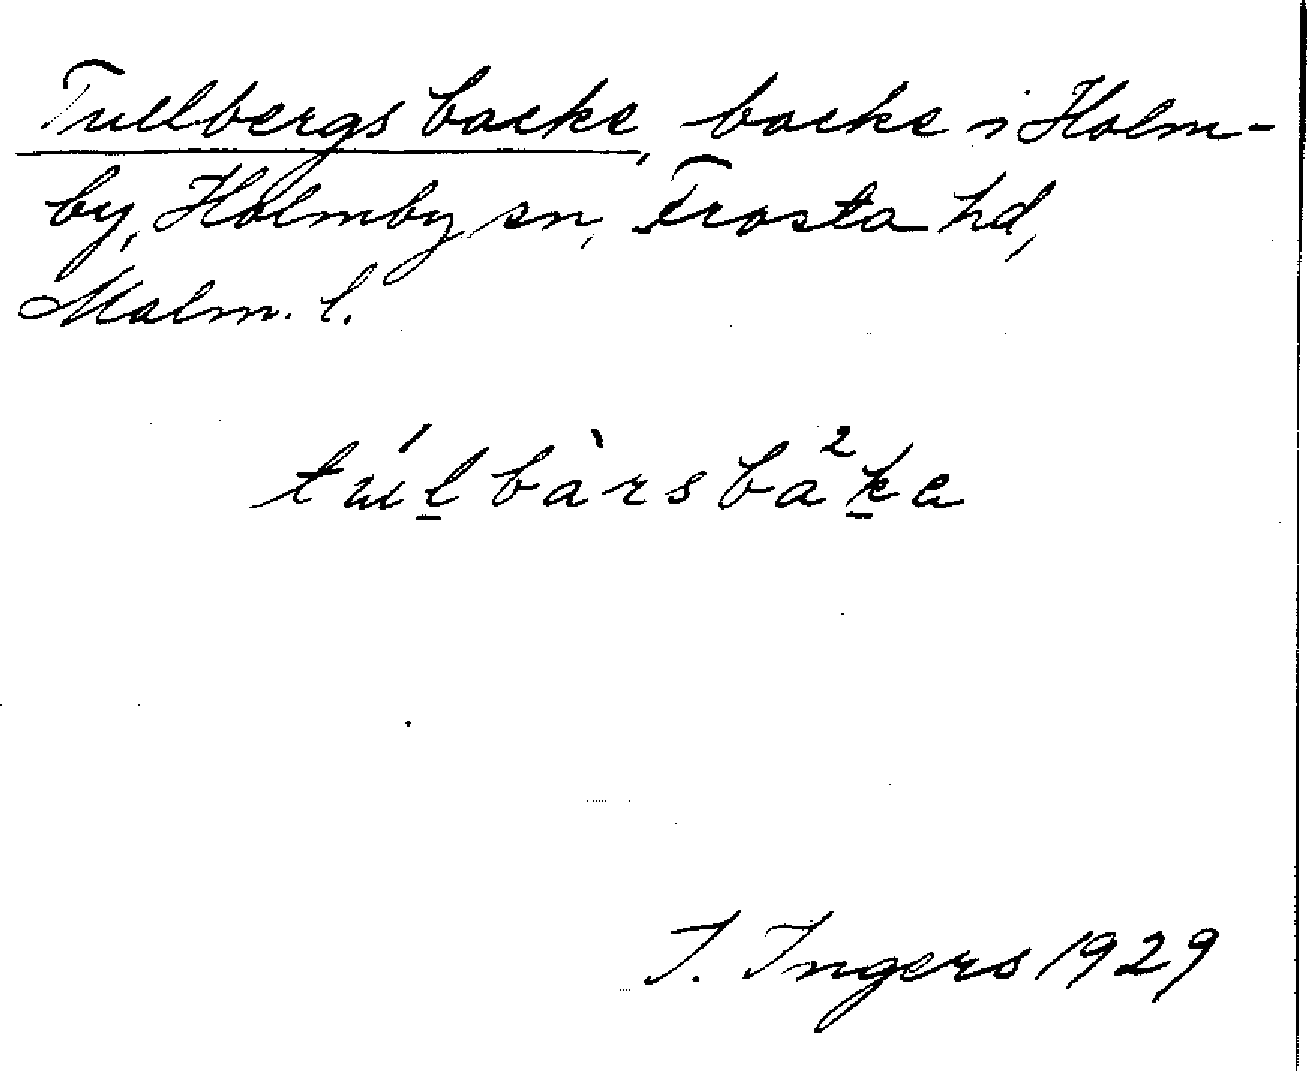 Tullbergs backe, backe i Holm-
by, Holmby sn, Frosta hd,
Malm. l.
túl̲bàrsba²k̲a
I. Ingers 1929